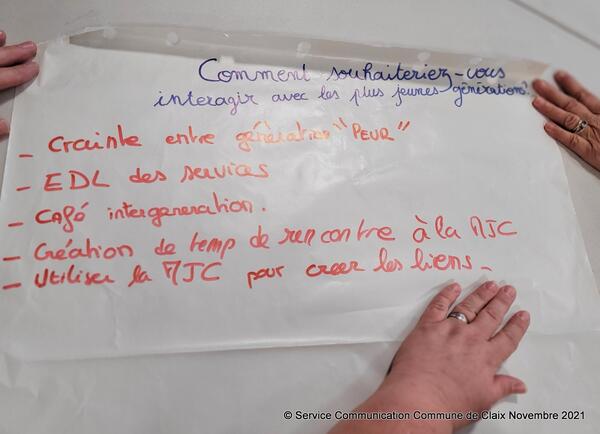 Comment souhaiteriez-vous
interagir avec les plus jeunes générations?
- Crainte entre génération "PEUR"
- EDL des services
- Café intergeneration.
- Création de temp de rencontre à la MJC
- Utiliser la MJC pour creer les liens -
© Service Communication Commune de Claix Novembre 2021